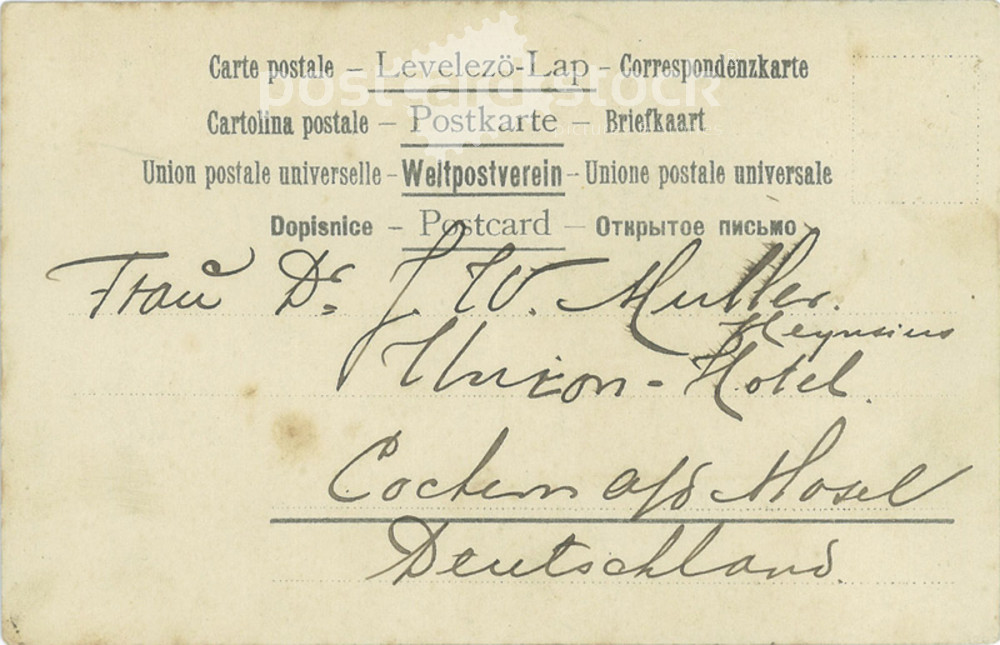 Carte postale – Levelezö-Lap – Correspondenzkarte
postcardstock
Cartolina postale – Postkarte – Briefkaart
Union postale universelle – Weltpostverein – Unione postale universale
Dopisnice – Postcard – Открытое письмо
Frau Dr. J. W. Muller.
Heynsius
Union-Hotel.
Cochem a/d Mosel
Deutschland.